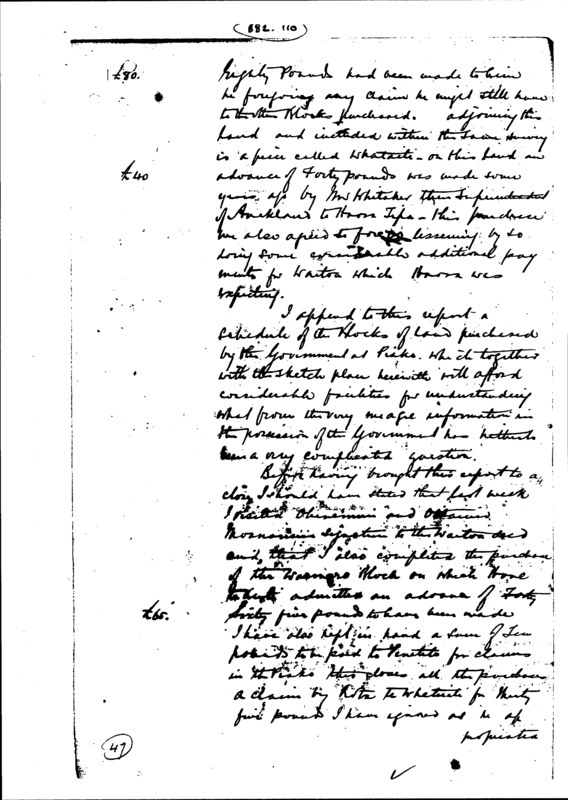 882. 110
£80. Eighty Pounds had been made to him
he foregoing any claim he might still have
to the other Blocks purchased. adjoining this
land and included within the same survey
is a piece called Whataiti - on this land an
£40 advance of Forty pounds was made some
years ago by Mr Whitaker then Superintendent
of Auckland to Haora Tipa - this purchase
we also agreed to forego lessening by so
doing some considerable additional pay
ments for Waitoa which Haora was
expecting.
I append to this report a
schedule of the Blocks of land purchased
by the Government at Piako. which together
with the sketch plan herewith will afford
considerable facilities for understanding
what from the very meagre information in
the possession of the Government has hitherto
been a very complicated question.
Before having brought this report to a
close I should have stated that last week
I visited and obtained
signature to the Waitoa deed
and that I also completed the purchase
of the Block on which Hone
admitted an advance of Forty
£65. Sixty five pounds to have been made
I have also kept in hand a sum of Ten
pounds to be paid to for claims
in the Piako this closes all the purchases
a claim by Te Whetuiti for thirty
five pounds I have ignored as he ap
propriated
47